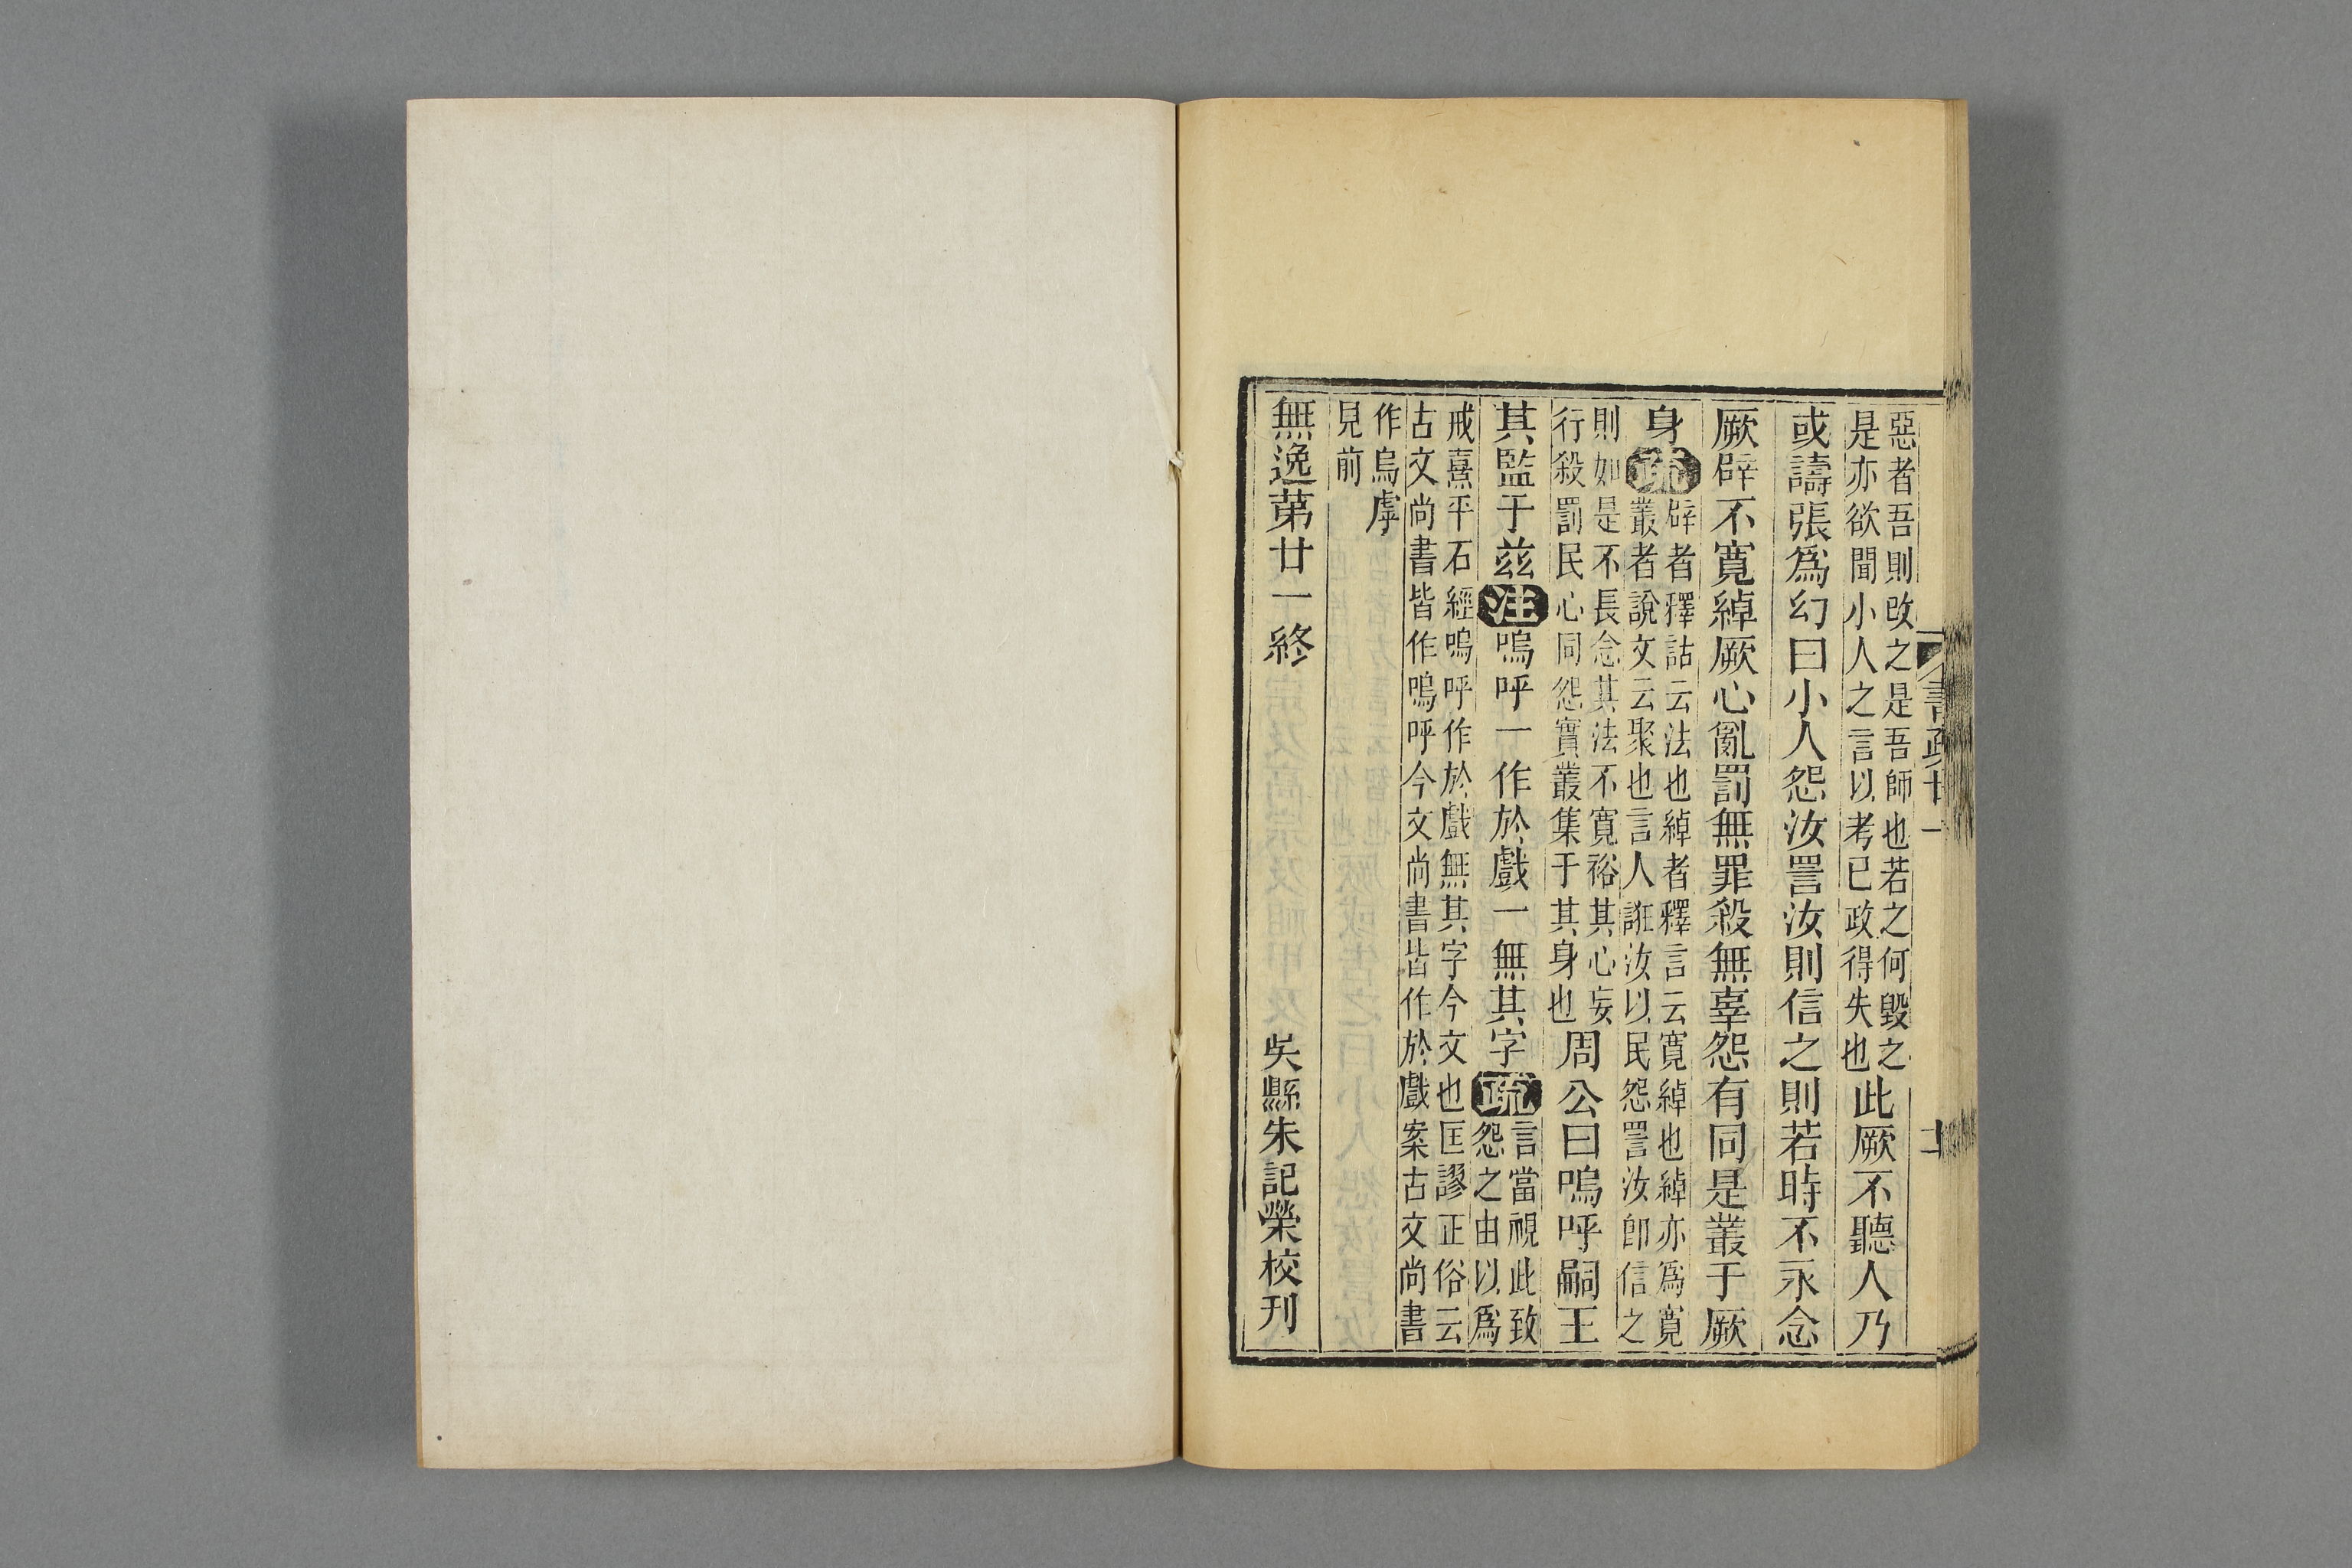 惡者吾則改之是吾師也若之何毀之
是亦欲聞小人之言以考已政得失也
此厥不聽人乃
或譸張爲幻曰小人怨汝詈汝則信之則若時不永念
厥辟不寬綽厥心亂罰無罪殺無辜怨有同是叢于厥
身疏
辟者釋詁云法也綽者釋言云寬綽也綽亦爲寬
叢者說文云聚也言人誑汝以民怨詈汝卽信之
則如是不長念其法不寬裕其心妄
行殺罰民心同怨實叢集于其身也
周公曰嗚呼嗣王
其監于兹注嗚呼一作於戲一無其字疏
言當視此致
怨之由以爲
戒熹平石經嗚呼作於戲無其字今文也匡謬正俗云
古文尚書皆作嗚呼今文尚書皆作於戲案古文尚書
作烏虖
見前
無逸第廿一終
吳縣朱記榮校刊
書疏廿一